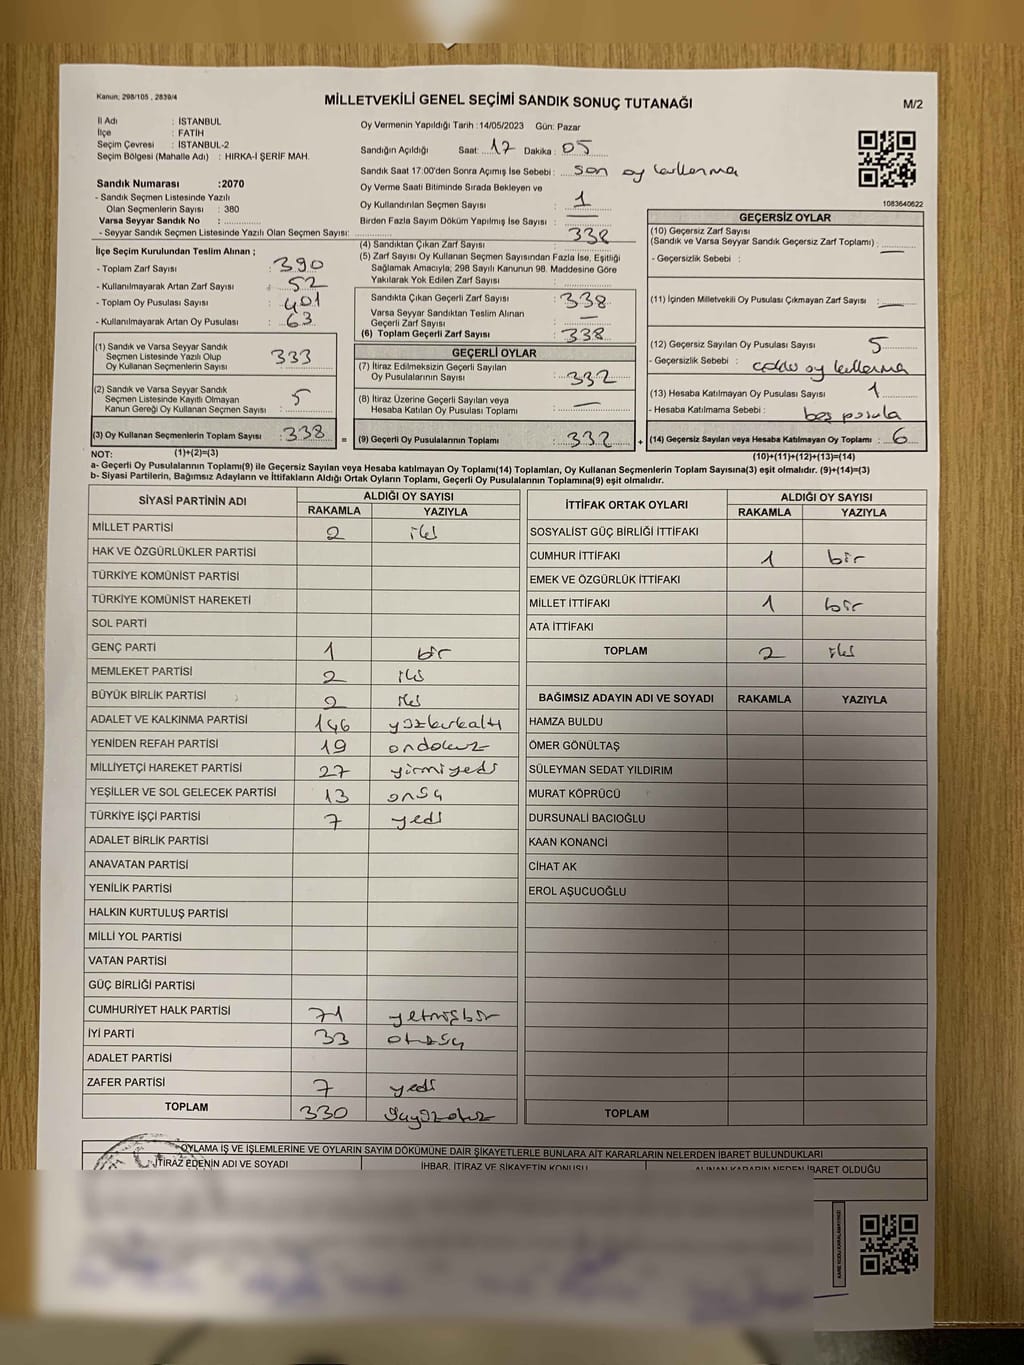 Kanun; 298/105 , 2839/4
MİLLETVEKİLİ GENEL SEÇİMİ SANDIK SONUÇ TUTANAĞI
M/2
İl Adı : İSTANBUL
İlçe : FATİH
Seçim Çevresi : İSTANBUL-2
Seçim Bölgesi (Mahalle Adı) : HIRKA-İ ŞERİF MAH.
Sandık Numarası :2070
- Sandık Seçmen Listesinde Yazılı
Olan Seçmenlerin Sayısı : 380
Varsa Seyyar Sandık No :
- Seyyar Sandık Seçmen Listesinde Yazılı Olan Seçmen Sayısı:
Oy Vermenin Yapıldığı Tarih :14/05/2023 Gün: Pazar
Sandığın Açıldığı Saat: 17 Dakika : 05
Sandık Saat 17:00'den Sonra Açımış İse Sebebi : son oy kullanma
Oy Verme Saati Bitiminde Sırada Bekleyen ve
Oy Kullandırılan Seçmen Sayısı : 1
Birden Fazla Sayım Döküm Yapılmış İse Sayısı : —
1083640622
İlçe Seçim Kurulundan Teslim Alınan ;
- Toplam Zarf Sayısı : 390
- Kullanılmayarak Artan Zarf Sayısı : 52
- Toplam Oy Pusulası Sayısı : 401
- Kullanılmayarak Artan Oy Pusulası : 63
(1) Sandık ve Varsa Seyyar Sandık
Seçmen Listesinde Yazılı Olup
Oy Kullanan Seçmenlerin Sayısı : 333
(2) Sandık ve Varsa Seyyar Sandık
Seçmen Listesinde Kayıtlı Olmayan
Kanun Gereği Oy Kullanan Seçmen Sayısı : 5
(3) Oy Kullanan Seçmenlerin Toplam Sayısı : 338 =
(1)+(2)=(3)
(4) Sandıktan Çıkan Zarf Sayısı : 338
(5) Zarf Sayısı Oy Kullanan Seçmen Sayısından Fazla İse, Eşitliği
Sağlamak Amacıyla; 298 Sayılı Kanunun 98. Maddesine Göre
Yakılarak Yok Edilen Zarf Sayısı :
Sandıkta Çıkan Geçerli Zarf Sayısı : 338
Varsa Seyyar Sandıktan Teslim Alınan
Geçerli Zarf Sayısı : —
(6) Toplam Geçerli Zarf Sayısı : 338
GEÇERLİ OYLAR
(7) İtiraz Edilmeksizin Geçerli Sayılan
Oy Pusulalarının Sayısı : 332
(8) İtiraz Üzerine Geçerli Sayılan veya
Hesaba Katılan Oy Pusulası Toplamı : —
(9) Geçerli Oy Pusulalarının Toplamı : 332 +
GEÇERSİZ OYLAR
(10) Geçersiz Zarf Sayısı
(Sandık ve Varsa Seyyar Sandık Geçersiz Zarf Toplamı) : —
- Geçersizlik Sebebi :
(11) İçinden Milletvekili Oy Pusulası Çıkmayan Zarf Sayısı : —
(12) Geçersiz Sayılan Oy Pusulası Sayısı : 5
- Geçersizlik Sebebi : oy kullanma
(13) Hesaba Katılmayan Oy Pusulası Sayısı : 1
- Hesaba Katılmama Sebebi : boş pusula
(14) Geçersiz Sayılan veya Hesaba Katılmayan Oy Toplamı : 6
(10)+(11)+(12)+(13)=(14)
NOT:
a- Geçerli Oy Pusulalarının Toplamı(9) ile Geçersiz Sayılan veya Hesaba katılmayan Oy Toplamı(14) Toplamları, Oy Kullanan Seçmenlerin Toplam Sayısına(3) eşit olmalıdır. (9)+(14)=(3)
b- Siyasi Partilerin, Bağımsız Adayların ve İttifakların Aldığı Ortak Oyların Toplamı, Geçerli Oy Pusulalarının Toplamına(9) eşit olmalıdır.
SİYASİ PARTİNİN ADI ALDIĞI OY SAYISI
RAKAMLA YAZIYLA
MİLLET PARTİSİ 2 iki
HAK VE ÖZGÜRLÜKLER PARTİSİ
TÜRKİYE KOMÜNİST PARTİSİ
TÜRKİYE KOMÜNİST HAREKETİ
SOL PARTİ
GENÇ PARTİ 1 bir
MEMLEKET PARTİSİ 2 iki
BÜYÜK BİRLİK PARTİSİ 2 iki
ADALET VE KALKINMA PARTİSİ 146 yüzkırkaltı
YENİDEN REFAH PARTİSİ 19 ondokuz
MİLLİYETÇİ HAREKET PARTİSİ 27 yirmiyedi
YEŞİLLER VE SOL GELECEK PARTİSİ 13 onüç
TÜRKİYE İŞÇİ PARTİSİ 7 yedi
ADALET BİRLİK PARTİSİ
ANAVATAN PARTİSİ
YENİLİK PARTİSİ
HALKIN KURTULUŞ PARTİSİ
MİLLİ YOL PARTİSİ
VATAN PARTİSİ
GÜÇ BİRLİĞİ PARTİSİ
CUMHURİYET HALK PARTİSİ 71 yetmişbir
İYİ PARTİ 33 otuzüç
ADALET PARTİSİ
ZAFER PARTİSİ 7 yedi
TOPLAM 330 üçyüzotuz
İTTİFAK ORTAK OYLARI ALDIĞI OY SAYISI
RAKAMLA YAZIYLA
SOSYALİST GÜÇ BİRLİĞİ İTTİFAKI
CUMHUR İTTİFAKI 1 bir
EMEK VE ÖZGÜRLÜK İTTİFAKI
MİLLET İTTİFAKI 1 bir
ATA İTTİFAKI
TOPLAM 2 iki
BAĞIMSIZ ADAYIN ADI VE SOYADI RAKAMLA YAZIYLA
HAMZA BULDU
ÖMER GÖNÜLTAŞ
SÜLEYMAN SEDAT YILDIRIM
MURAT KÖPRÜCÜ
DURSUNALİ BACIOĞLU
KAAN KONANCİ
CİHAT AK
EROL AŞUCUOĞLU
TOPLAM
OYLAMA İŞ VE İŞLEMLERİNE VE OYLARIN SAYIM DÖKÜMÜNE DAİR ŞİKAYETLERLE BUNLARA AİT KARARLARIN NELERDEN İBARET BULUNDUKLARI
İTİRAZ EDENİN ADI VE SOYADI İHBAR, İTİRAZ VE ŞİKAYETİN KONUSU ALINAN KARARIN NEDEN İBARET OLDUĞU